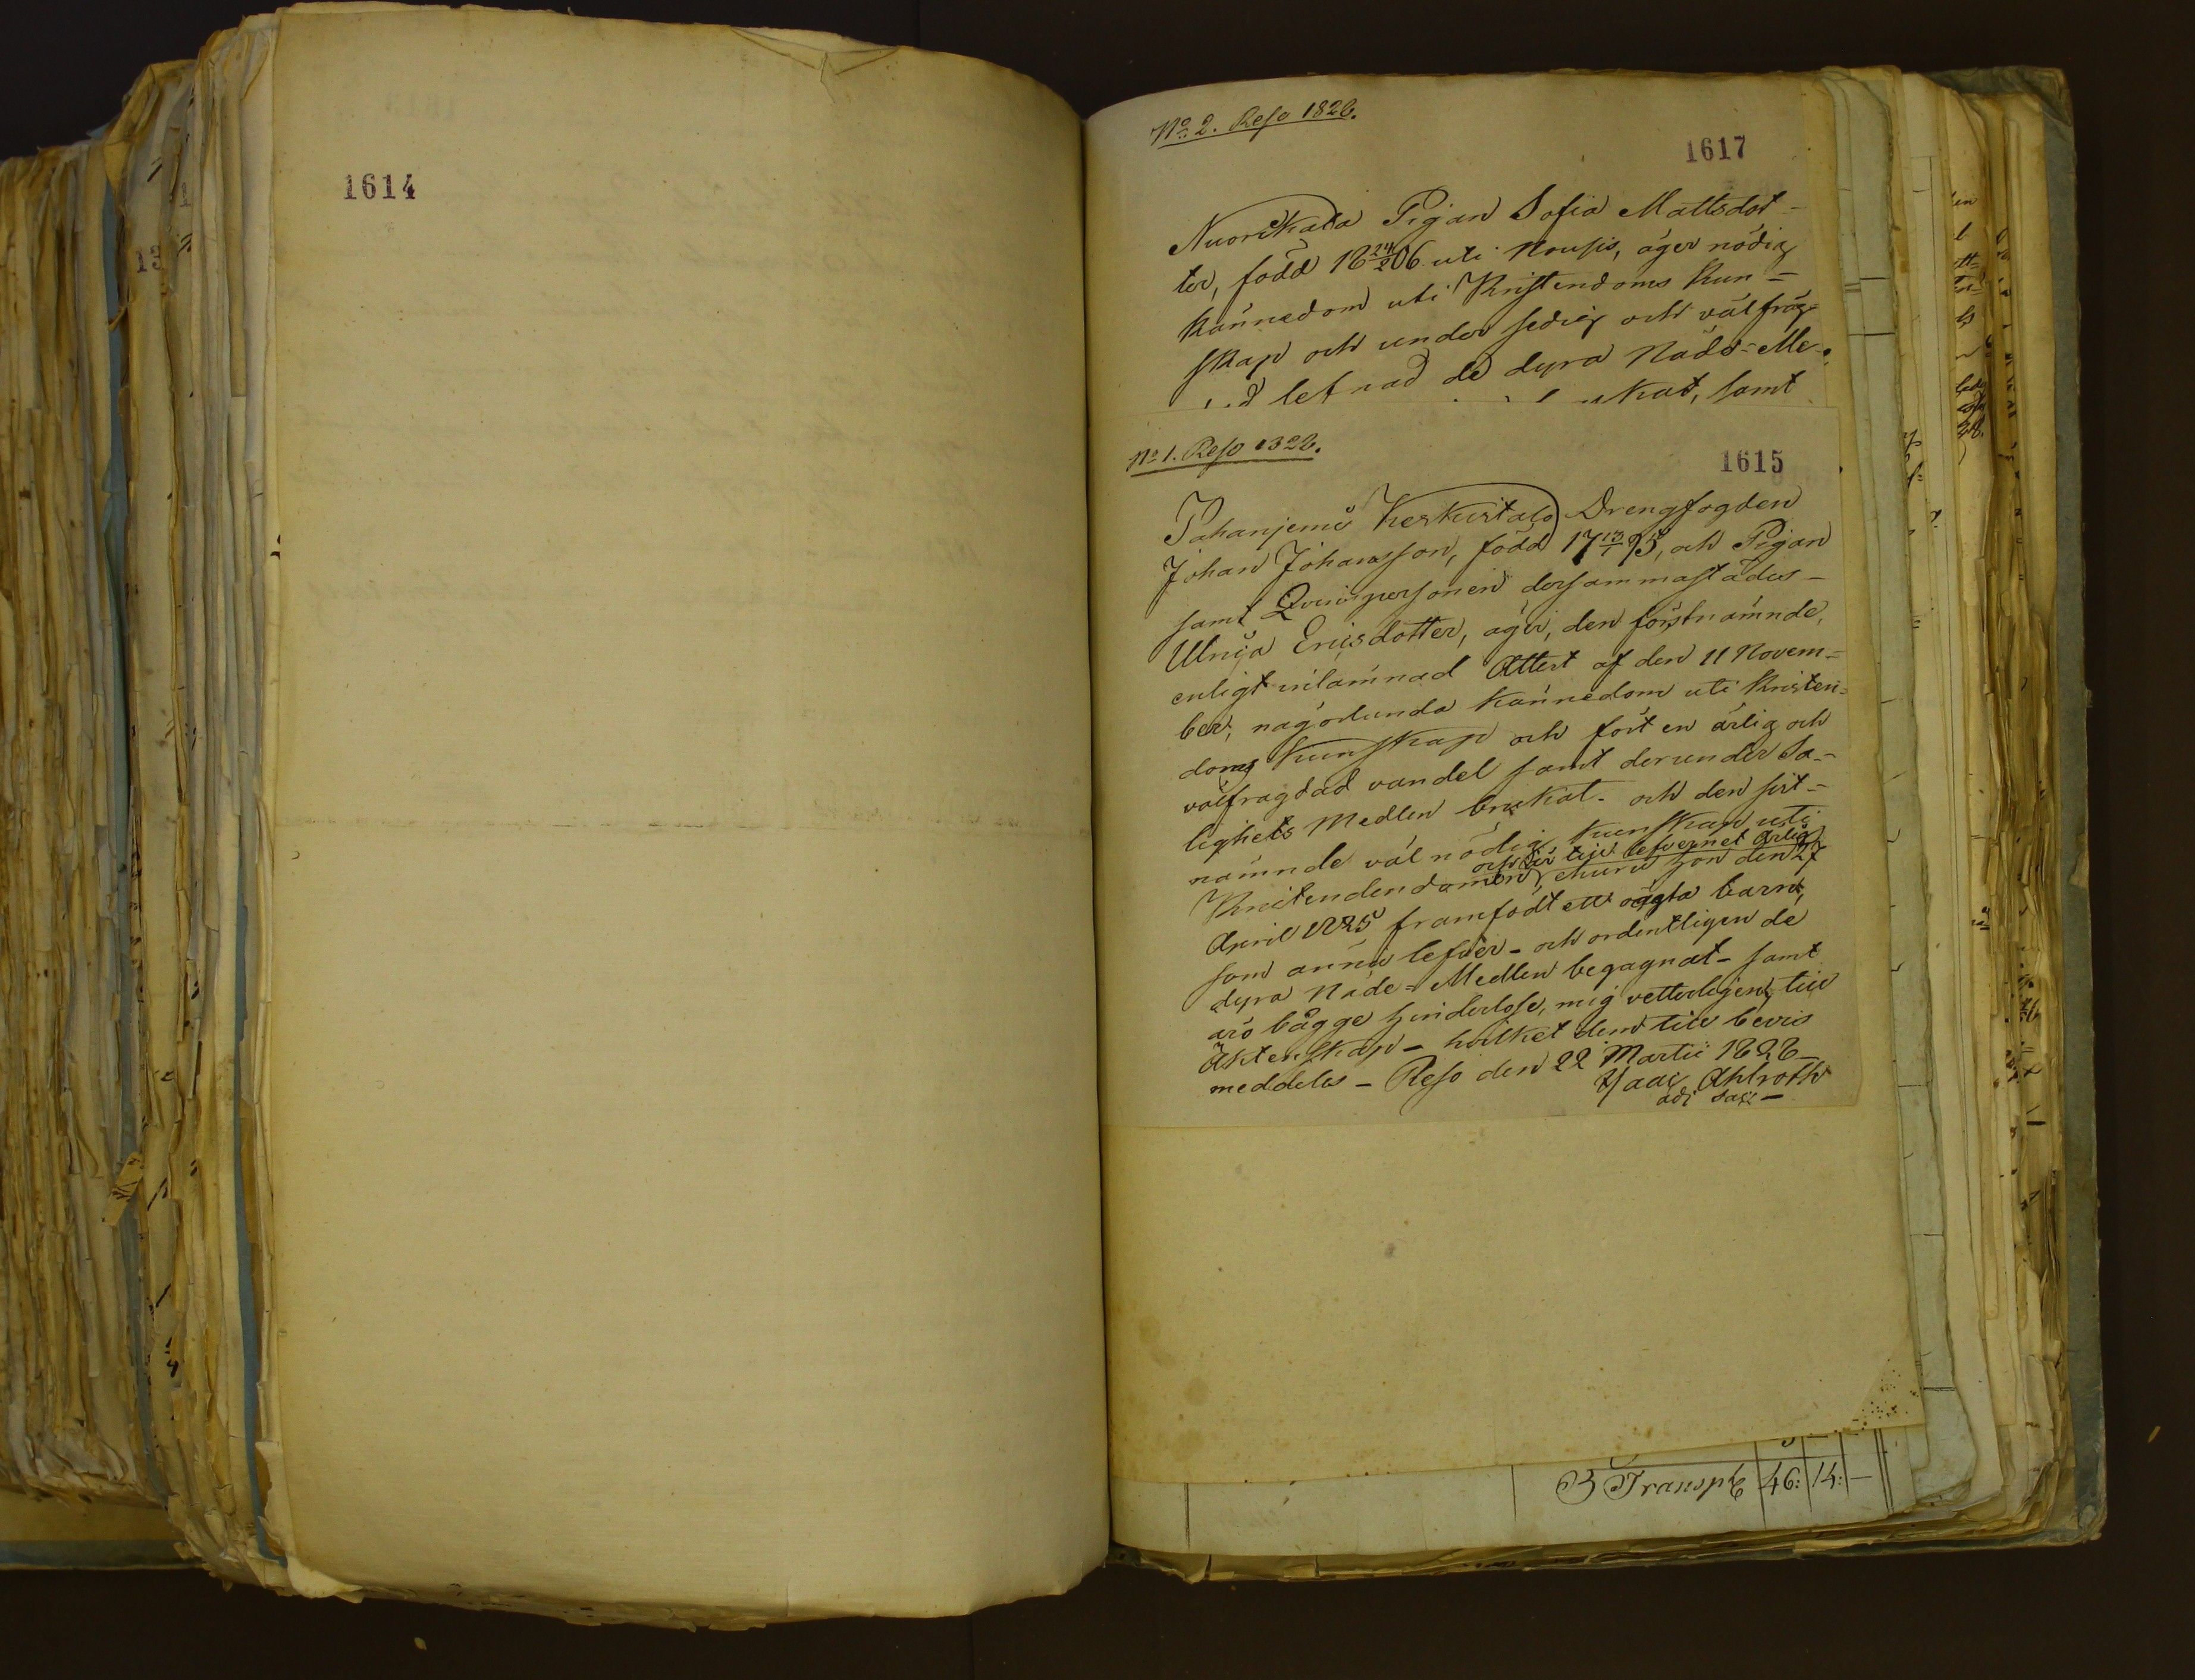 1614
No 2. Reso 1826.
1617
Nuorikala Pigan Sofia Mattsdot-
ter, född 18 24/2 06 uti Nousis, äger nödig
kännedom uti Kristendoms Kun-
skap och under sedig och välfräg-
lefnad de dyra Nåde-Me-
kat, samt
No 1. Reso 1826.
1615
Pahanjemi Keskustalo Drengfogden
Johan Johansson, född 17 13/1 95, och Pigan
samt Qvinspersonen dersammastädes-
Ulrica Ericsdotter, äger, den förstnämnde,
enligt inlämnad Attest af den 11 Novem-
ber, någorlunda kännedom uti Kristen-
doms Kunskap och fört en ärlig och
välfragdad vandel samt derunder Sa-
lighets Medlen brukat- och den sist-
nämnde väl nödig kunskap uti
och är till lefvernet ärlig
Kristendomen, ehuru hon den 27
April 1825 framfödt ett oägta barn,
som ännu lefver- och ordentligen de
dyra Nåde-Medlen begagnat- samt
äro bägge hinderlöse, mig vetterligen, till
Äktenskap- hvilket dem till bevis
meddeles- Reso den 22 Martii 1826-
Isaac Ahlroth
adj. Sac:-
Transpt 46: 14: -